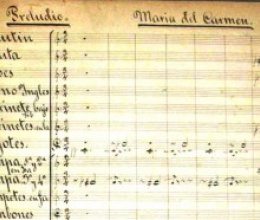 Preludio. Maria del Carmen.
autin
uta
oes
no Ingles
rinete bajo
rinetes en la
gotes.
mpa 1ª y 2ª
en Fa
mpa 3ª y 4ª
mpetes en fa
mbones